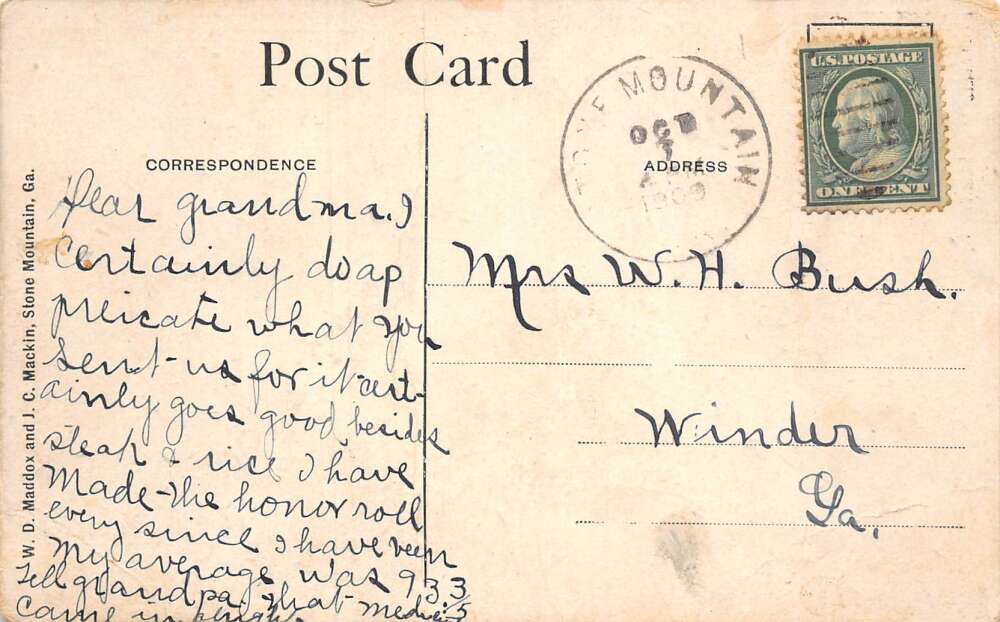 Post Card
STONE MOUNTAIN
OCT
7
1909
U.S. POSTAGE
ONE CENT
CORRESPONDENCE
ADDRESS
W. D. Maddox and J. C. Mackin, Stone Mountain, Ga.
Dear grandma. I
certainly do ap
preicate what you
sent us for it cert-
ainly goes good besides
steak & rice I have
Made the honor roll
every since I have been
My average was 93 3/5
Tell grandpa that
came in
Mrs W. H. Bush.
Winder
Ga.